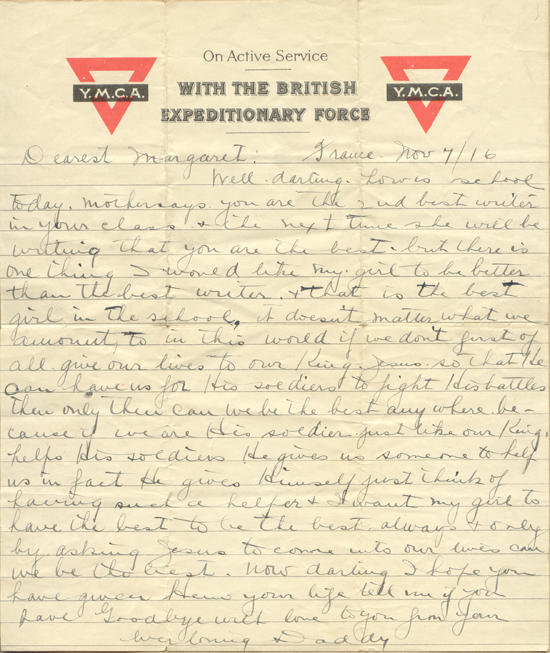 On Active Service
WITH THE BRITISH
EXPEDITIONARY FORCE
Y.M.C.A.
Y.M.C.A.
Dearest Margaret: France Nov 7/16
Well darling how is school
today. mother says you are the 2nd best writer
in your class & the next time she will be
writing that you are the best. but there is
one thing I would like my girl to be better
than the best writer. & that is the best
girl in the school, it doesn't matter what we
amount to in this world if we don't first of
all give our lives to our King Jesus so that He
can have us for His soldiers to fight His battles
then only then can we be the best any where be-
cause if we are His soldier just like our King
helps His soldiers He gives us someone to help
us in fact He gives Himself just think of
having such a helper & I want my girl to
have the best to be the best always & only
by asking Jesus to come into our lives can
we be the best. Now darling I hope you
have given Him your life tell me if you
have Goodbye with love to you from your
Ever loving Daddy